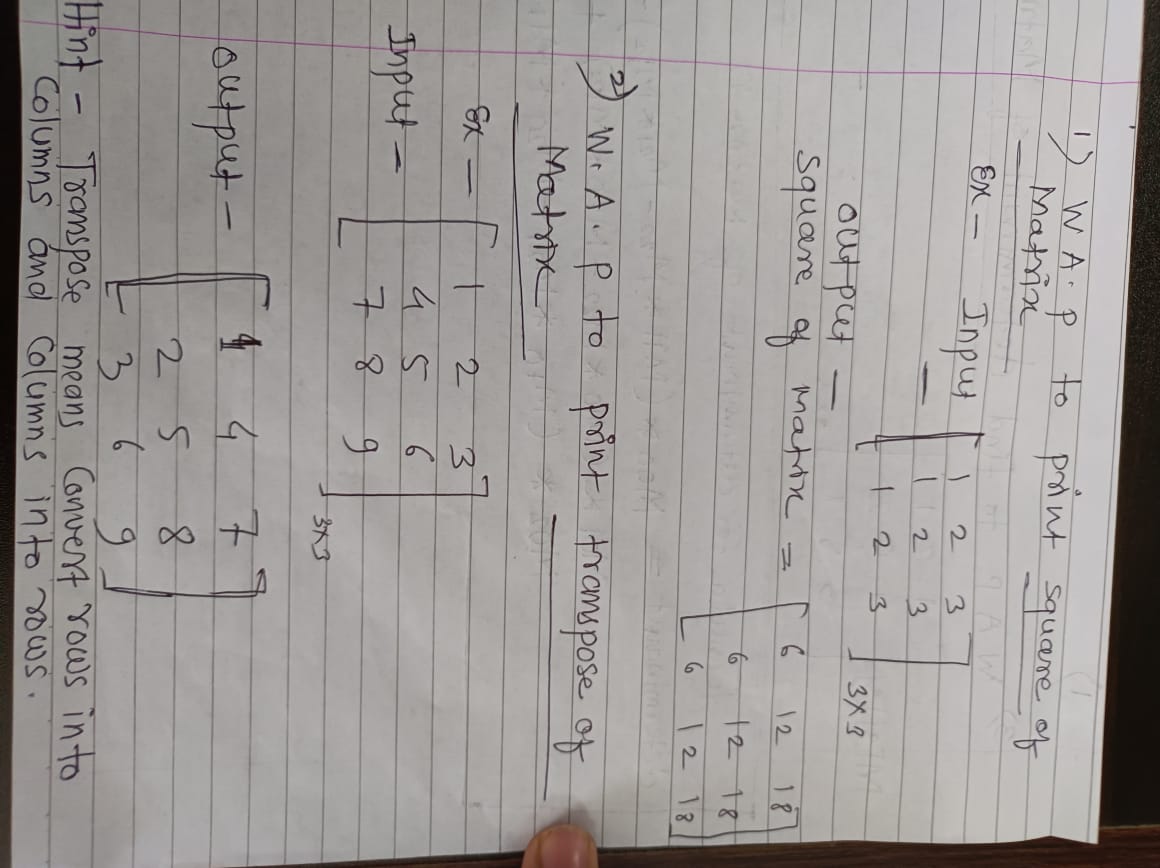 1) W A. P to print square of
Matrix
Ex - Input
1 2 3
1 2 3
1 2 3
3x3
output -
square of matrix =
6 12 18
6 12 18
6 12 18
2) W. A. P to print transpose of
Matrix
Ex -
Input -
1 2 3
4 5 6
7 8 9
3x3
output -
1 4 7
2 5 8
3 6 9
Hint - Transpose means Convert rows into
Columns and Columns into rows.